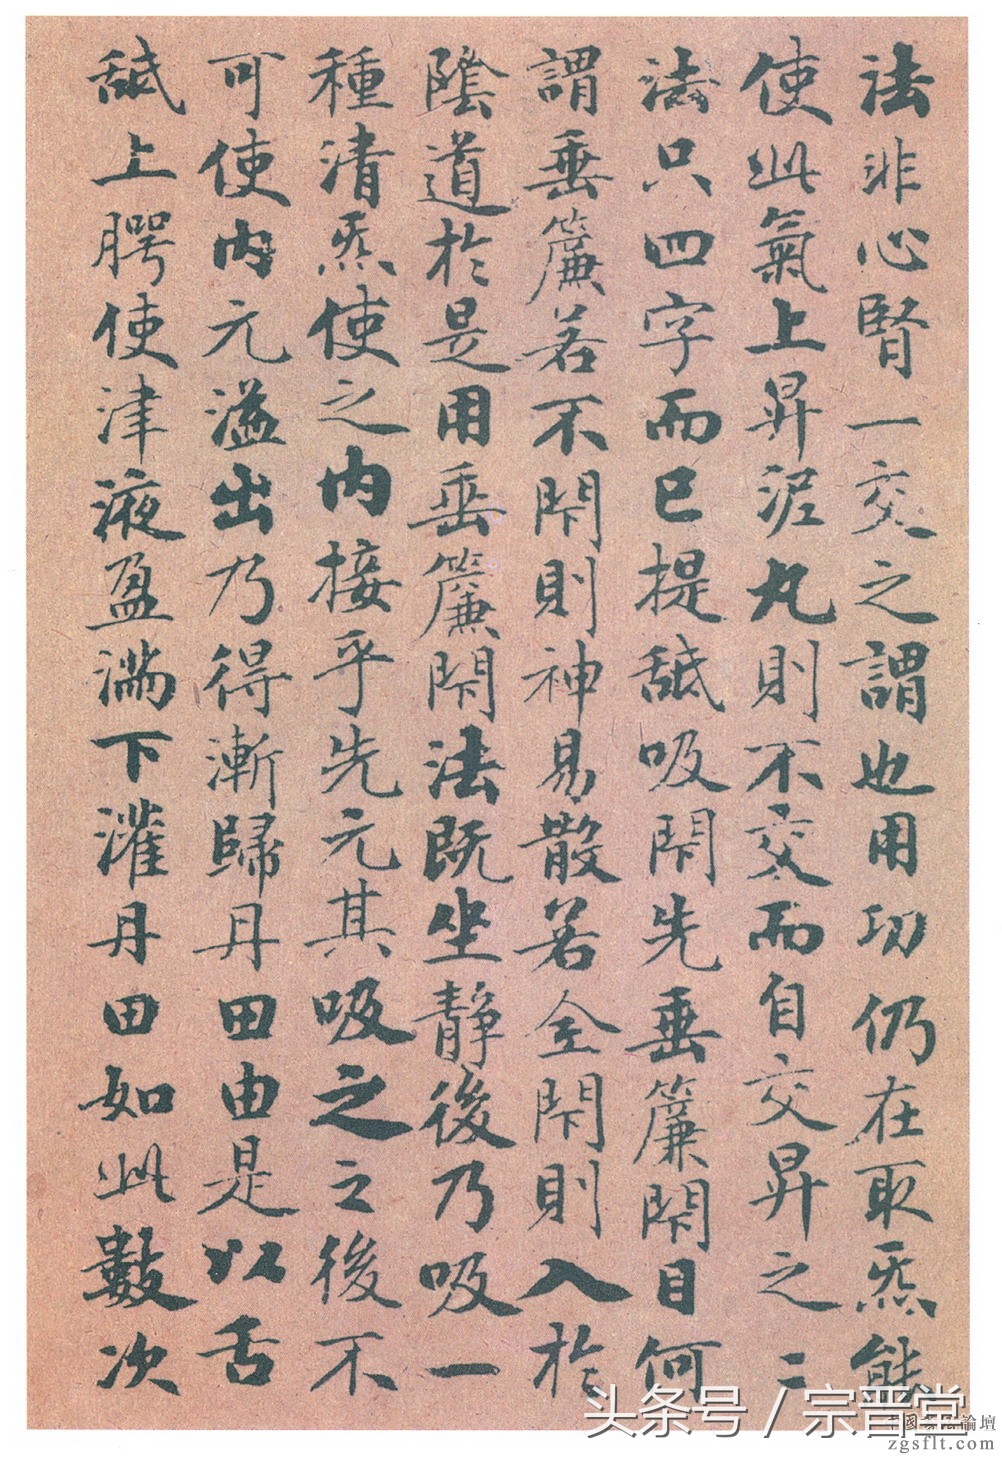 法非心腎一交之謂也用功仍在取炁能
使此氣上昇泥丸則不交而自交昇之二
法只四字而已提舐吸閉先垂簾閉目何
謂垂簾若不閉則神易散若全閉則入於
陰道於是用垂簾閉法既坐靜後乃吸一
種清炁使之内接乎先元其吸之之後不
可使内元溢出乃得漸歸丹田由是以舌
舐上腭使津液盈满下灌丹田如此數次
头条号 / 宗晋堂
中國書法論壇
zgsflt.com